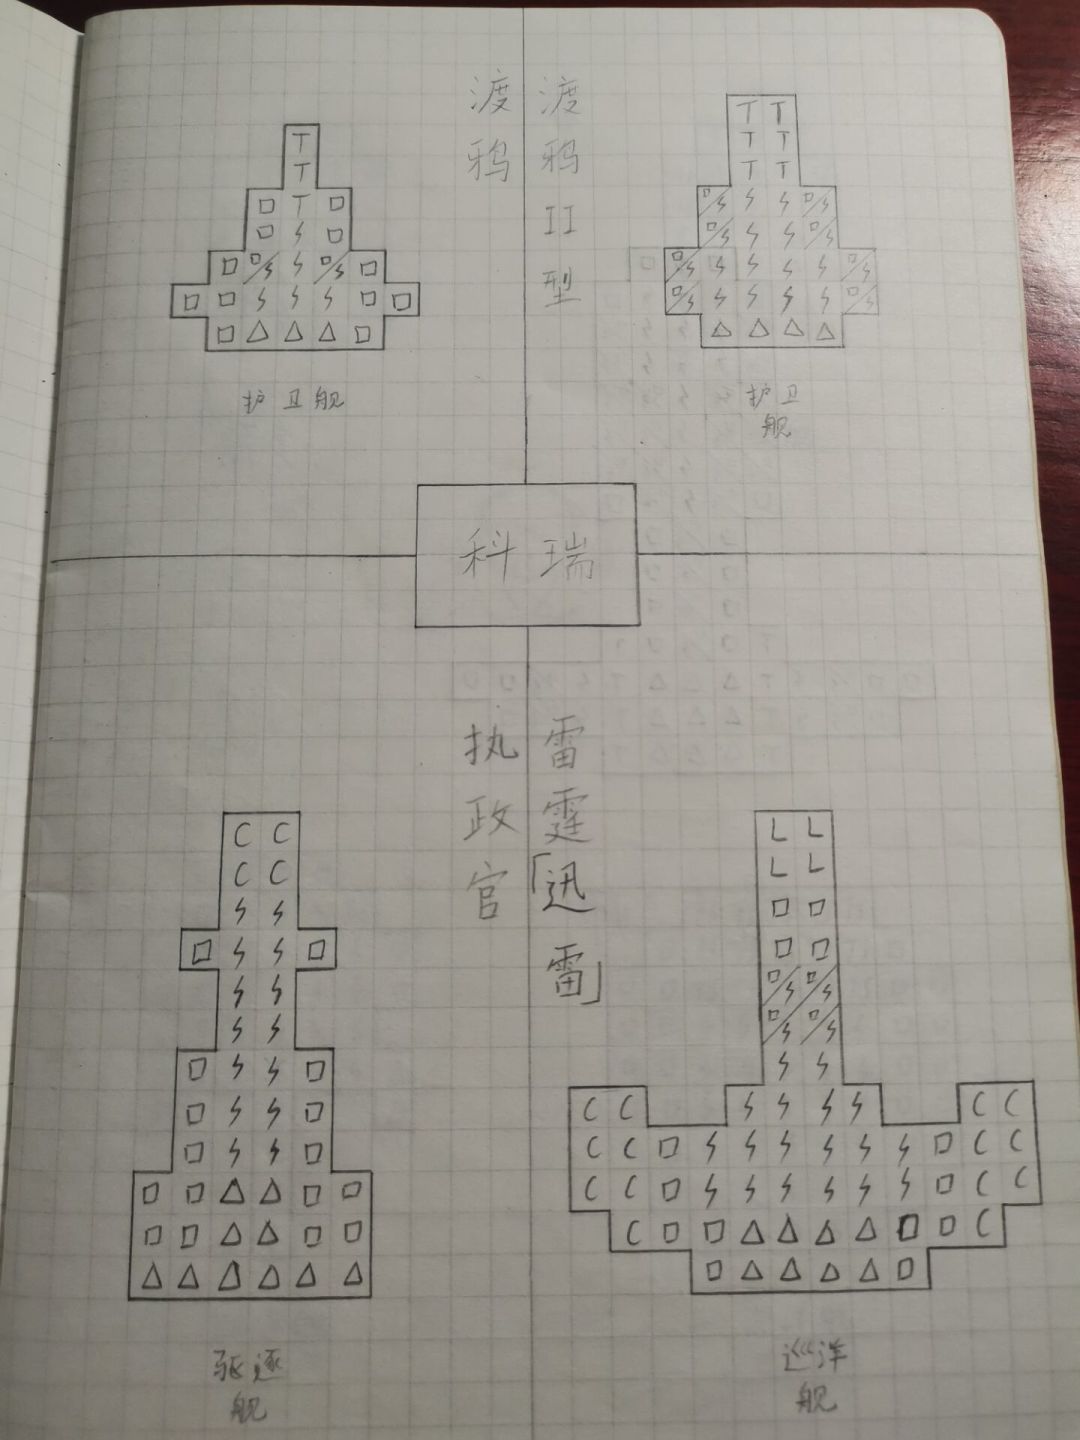 渡鸦
T
T
T
护卫舰
渡鸦II型
T T
T T
T T
护卫
舰
科瑞
执政官
C C
C C
驱逐
舰
雷霆「迅雷」
L L
L L
C C C C
C C C C
C C C C
C C
巡洋
舰